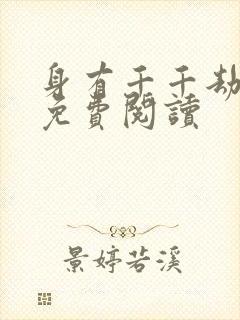 身有千千劫
免費閱讀
景婷若溪